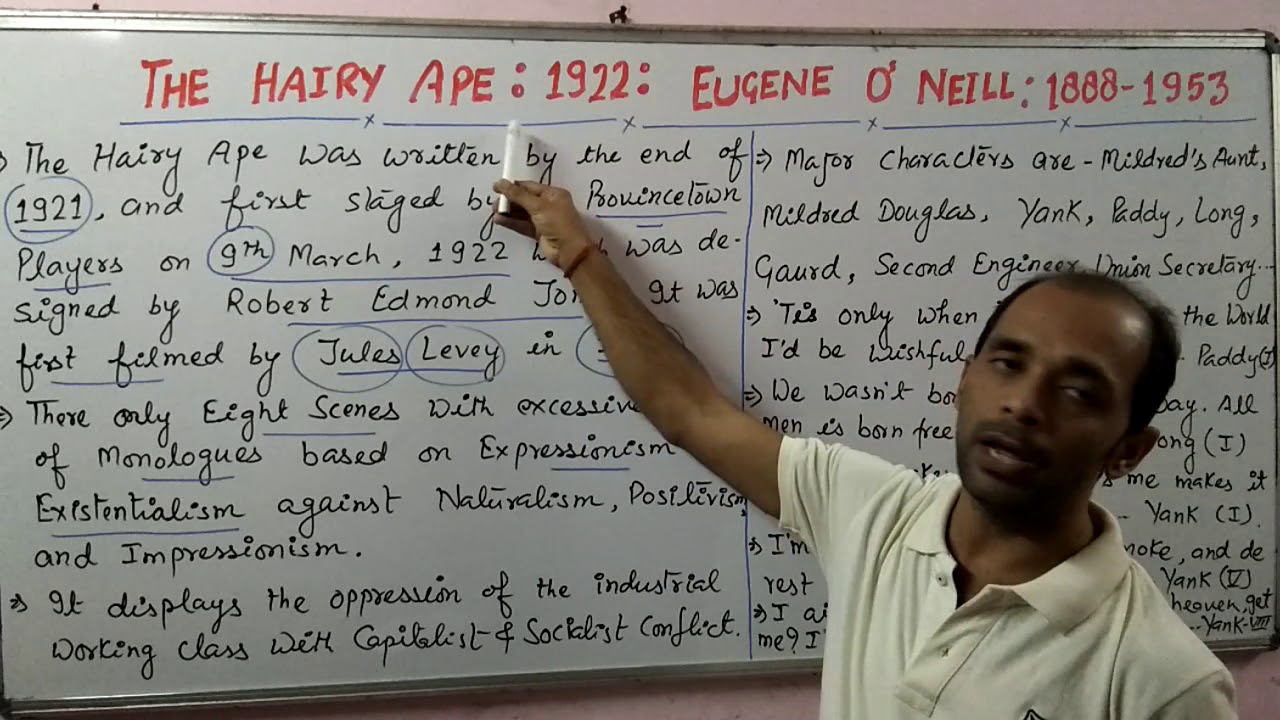 THE HAIRY APE : 1922 : EUGENE O' NEILL : 1888-1953
The Hairy Ape was written by the end of
1921, and first staged by Provincetown
Players on 9th March, 1922 was de-
signed by Robert Edmond It was
first filmed by Jules Levey in
⇒ There only Eight Scenes with excessive
of Monologues based on Expressionism
Existentialism against Naturalism, Positivism,
and Impressionism.
⇒ It displays the oppression of the industrial
working class with Capitalist & Socialist Conflict.
⇒ Major characters are - Mildred's Aunt,
Mildred Douglas, Yank, Paddy, Long,
Gaurd, Second Engineer, Union Secretary...
⇒ 'Tis only when the World
I'd be wishful Paddy (I)
⇒ We wasn't day. All
men is born free (I)
me makes it
.. Yank (I).
⇒ I'm and de
rest Yank (V)
⇒ I heaven, get
me? ..Yank-VIII